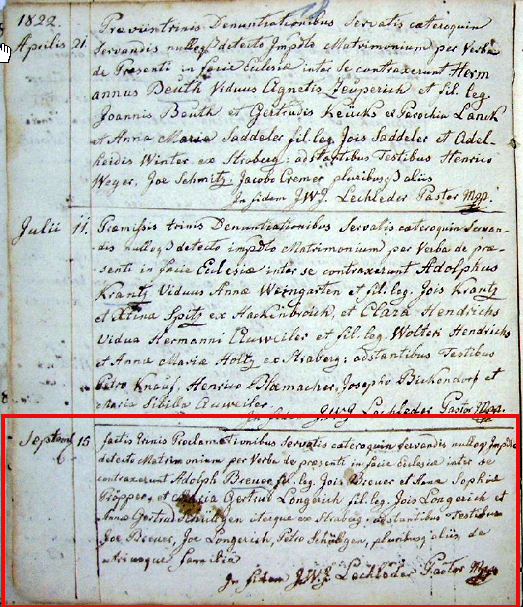 1822.
Aprilis 21. Praeviis trinis Denuntiationibus Servatis caeteroquin
Servandis nulloq detecto Impdto Matrimonium per Verba
de Presenti in facie Ecclesiae inter se contraxerunt Herm
annus Beuth Viduus Agnetis Zeuperich et fil. leg.
Joannis Beuth et Gertrudis Keücks ex Parochia Lanck
et Anna Maria Saddeler fil. leg. Jois Saddeler et Adel-
heidis Winter ex Straberg: adstantibus Testibus Henrico
Weyer, Joe Schmitz, Jacobo Cremer pluribusq aliis
In fidem J.W.J. Lechleder Pastor Mpp.
Julii 11. Praemissis trinis Denuntiationibus Servatis caeteroquin Servan-
dis nulloq detecto impdto Matrimonium per Verba de prae-
senti in facie Ecclesiae inter se contraxerunt Adolphus
Krantz Viduus Annae Weingarten et fil. leg. Jois Krantz
et Xtina Spitz ex Hackenbroich, et Clara Hendrichs
Vidua Hermanni Auweiler et fil. leg. Wolteri Hendrichs
et Anna Mariae Holtz ex Straberg; adstantibus Testibus
Petro Knauf, Henrico Blaemacher, Josepho Bickendorf et
Maria Sibilla Auweiler
In fidem JWJ Lechleder Pastor Mpp.
Septemb 15 factis trinis Proclamationibus Servatis caeteroquin Servandis nulloq Impdto
detecto Matrimonium per Verba de presenti in facie Ecclesiae inter se
contraxerunt Adolph Breuer fil. leg. Jois Breuer et Anna Sophiae
et Maria Gertrud Longerich fil. leg. Jois Longerich et
Anna Gertrud Schüllgen uterque ex Straberg, adstantibus Testibus
Joe Breuer, Joe Longerich, Petro Schüllgen, pluribusq aliis de
utriusque familia
In fidem J.W.J. Lechleder Pastor Mpp